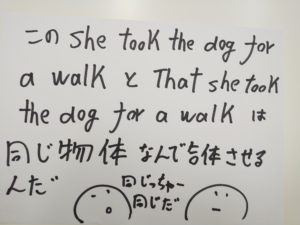 この she took the dog for
a walk と That she took
the dog for a walk は
同じ物体 なんで合体させる
んだ
同じっちゃー
同じだ